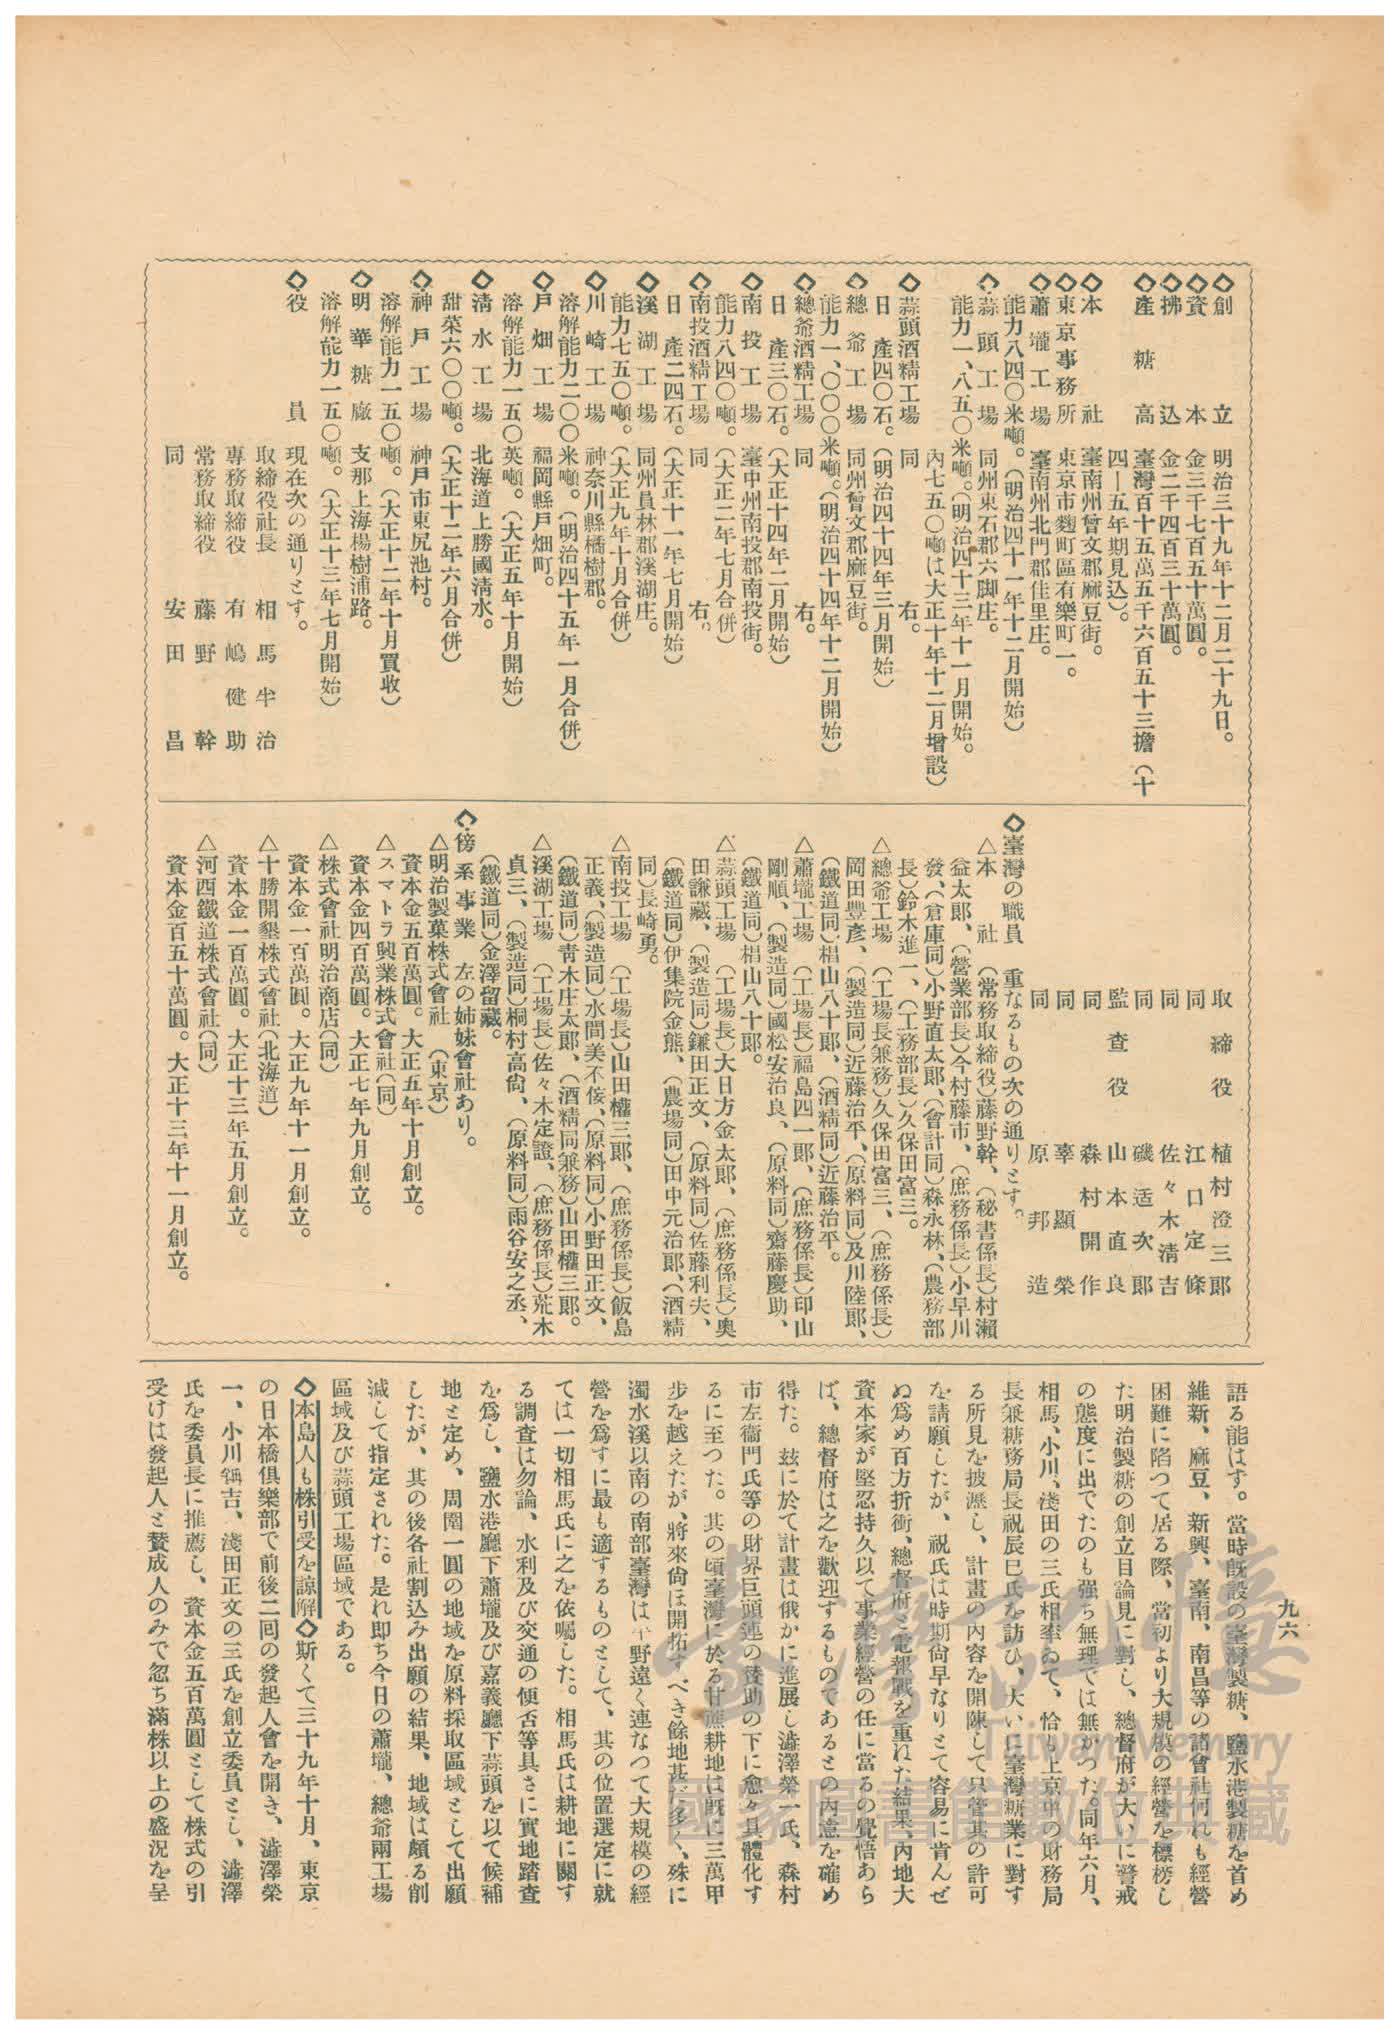 九六
◇創立 明治三十九年十二月二十九日。
◇資本 金三千七百五十萬圓。
◇拂込 金二千四百三十萬圓。
◇產糖高 臺灣百十五萬五千六百五十三擔（十
四―五年期見込）。
◇本社 臺南州曾文郡麻豆街。
◇東京事務所 東京市麴町區有樂町一。
◇蕭壠工場 臺南州北門郡佳里庄。
能力八四〇米噸。（明治四十一年十二月開始）
◇蒜頭工場 同州東石郡六脚庄。
能力一、八五〇米噸。（明治四十三年十一月開始。
內七五〇噸は大正十年十二月增設）
◇蒜頭酒精工場 同 右。
日產四〇石。（明治四十四年三月開始）
◇總爺工場 同州曾文郡麻豆街。
能力一、〇〇〇米噸。（明治四十四年十二月開始）
◇總爺酒精工場 同 右。
日產三〇石。（大正十四年二月開始）
◇南投工場 臺中州南投郡南投街。
能力八四〇噸。（大正二年七月合併）
◇南投酒精工場 同 右。
日產二四石。（大正十一年七月開始）
◇溪湖工場 同州員林郡溪湖庄。
能力七五〇噸。（大正九年十月合併）
◇川崎工場 神奈川縣橘樹郡。
溶解能力二〇〇米噸。（明治四十五年一月合併）
◇戶畑工場 福岡縣戶畑町。
溶解能力一五〇英噸。（大正五年十月開始）
◇淸水工場 北海道上勝國淸水。
甜菜六〇〇噸。（大正十二年六月合併）
◇神戶工場 神戶市東尻池村。
溶解能力一五〇噸。（大正十二年十月買收）
◇明華糖廠 支那上海楊樹浦路。
溶解能力一五〇噸。（大正十三年七月開始）
◇役員 現在次の通りとす。
取締役社長 相馬半治
專務取締役 有嶋健助
常務取締役 藤野幹
同 安田昌
取締役 植村澄三郞
同 江口定條
同 佐々木淸吉
同 磯适次郞
監查役 山本直良
同 森村開作
同 辜顯榮
同 原邦造
◇臺灣の職員 重なるもの次の通りとす。
△本社 （常務取締役）藤野幹、（秘書係長）村瀨
益太郞、（營業部長）今村藤市、（庶務係長）小早川
發、（倉庫同）小野直太郞、（會計同）森永林、（農務部
長）鈴木進一、（工務部長）久保田富三。
△總爺工場 （工場長兼務）久保田富三、（庶務係長）
岡田豐彥、（製造同）近藤治平、（原料同）及川陸郞、
（鐵道同）椙山八十郞、（酒精同）近藤治平。
△蕭壠工場 （工場長）福島四一郞、（庶務係長）印山
剛順、（製造同）國松安治良、（原料同）齋藤慶助、
（鐵道同）椙山八十郞。
△蒜頭工場 （工場長）大日方金太郞、（庶務係長）奧
田謙藏、（製造同）鎌田正文、（原料同）佐藤利夫、
（鐵道同）伊集院金熊、（農場同）田中元治郞、（酒精
同）長崎勇。
△南投工場 （工場長）山田權三郞、（庶務係長）飯島
正義、（製造同）水間美不俊、（原料同）小野田正文、
（鐵道同）靑木庄太郞、（酒精同兼務）山田權三郞。
△溪湖工場 （工場長）佐々木定證、（庶務係長）荒木
貞三、（製造同）桐村高尙、（原料同）雨谷安之丞、
（鐵道同）金澤留藏。
◇傍系事業 左の姉妹會社あり。
△明治製菓株式會社 （東京）
資本金五百萬圓。大正五年十月創立。
△スマトラ興業株式會社（同）
資本金四百萬圓。大正七年九月創立。
△株式會社明治商店（同）
資本金一百萬圓。大正九年十一月創立。
△十勝開墾株式會社（北海道）
資本金一百萬圓。大正十三年五月創立。
△河西鐵道株式會社（同）
資本金百五十萬圓。大正十三年十一月創立。
語る能はす。當時旣設の臺灣製糖、鹽水港製糖を首め
維新、麻豆、新興、臺南、南昌等の諸會社何れも經營
困難に陷つて居る際、當初より大規模の經營を標榜し
た明治製糖の創立目論見に對し、總督府が大いに警戒
の態度に出でたのも强ち無理では無かつた。同年六月、
相馬、小川、淺田の三氏相率ゐて、恰も上京中の財務局
長兼糖務局長祝辰巳氏を訪ひ、大いに臺灣糖業に對す
る所見を披瀝し、計畫の內容を開陳して只管其の許可
を請願したが、祝氏は時期尙早なりとて容易に肯んぜ
ぬ爲め百方折衝、總督府と電報戰を重ねた結果、內地大
資本家が堅忍持久以て事業經營の任に當るの覺悟あら
ば、總督府は之を歡迎するものであるとの內意を確め
得た。玆に於て計畫は俄かに進展し澁澤榮一氏、森村
市左衞門氏等の財界巨頭連の贊助の下に愈々具體化す
るに至つた。其の頃臺灣に於る甘蔗耕地は旣に三萬甲
步を越えたが、將來尙ほ開拓すべき餘地甚だ多く、殊に
濁水溪以南の南部臺灣は平野遠く連なつて大規模の經
營を爲すに最も適するものとして、其の位置選定に就
ては一切相馬氏に之を依囑した。相馬氏は耕地に關す
る調查は勿論、水利及び交通の便否等具さに實地踏查
を爲し、鹽水港廳下蕭壠及び嘉義廳下蒜頭を以て候補
地と定め、周圍一圓の地域を原料採取區域として出願
したが、其の後各社割込み出願の結果、地域は頗る削
減して指定された。是れ卽ち今日の蕭壠、總爺兩工場
區域及び蒜頭工場區域である。
◇本島人も株引受を諒解◇斯くて三十九年十月、東京
の日本橋俱樂部で前後二回の發起人會を開き、澁澤榮
一、小川䤡吉、淺田正文の三氏を創立委員とし、澁澤
氏を委員長に推薦し、資本金五百萬圓として株式の引
受けは發起人と贊成人のみで忽ち滿株以上の盛況を呈
臺灣記憶
Taiwan Memory
國家圖書館數位典藏